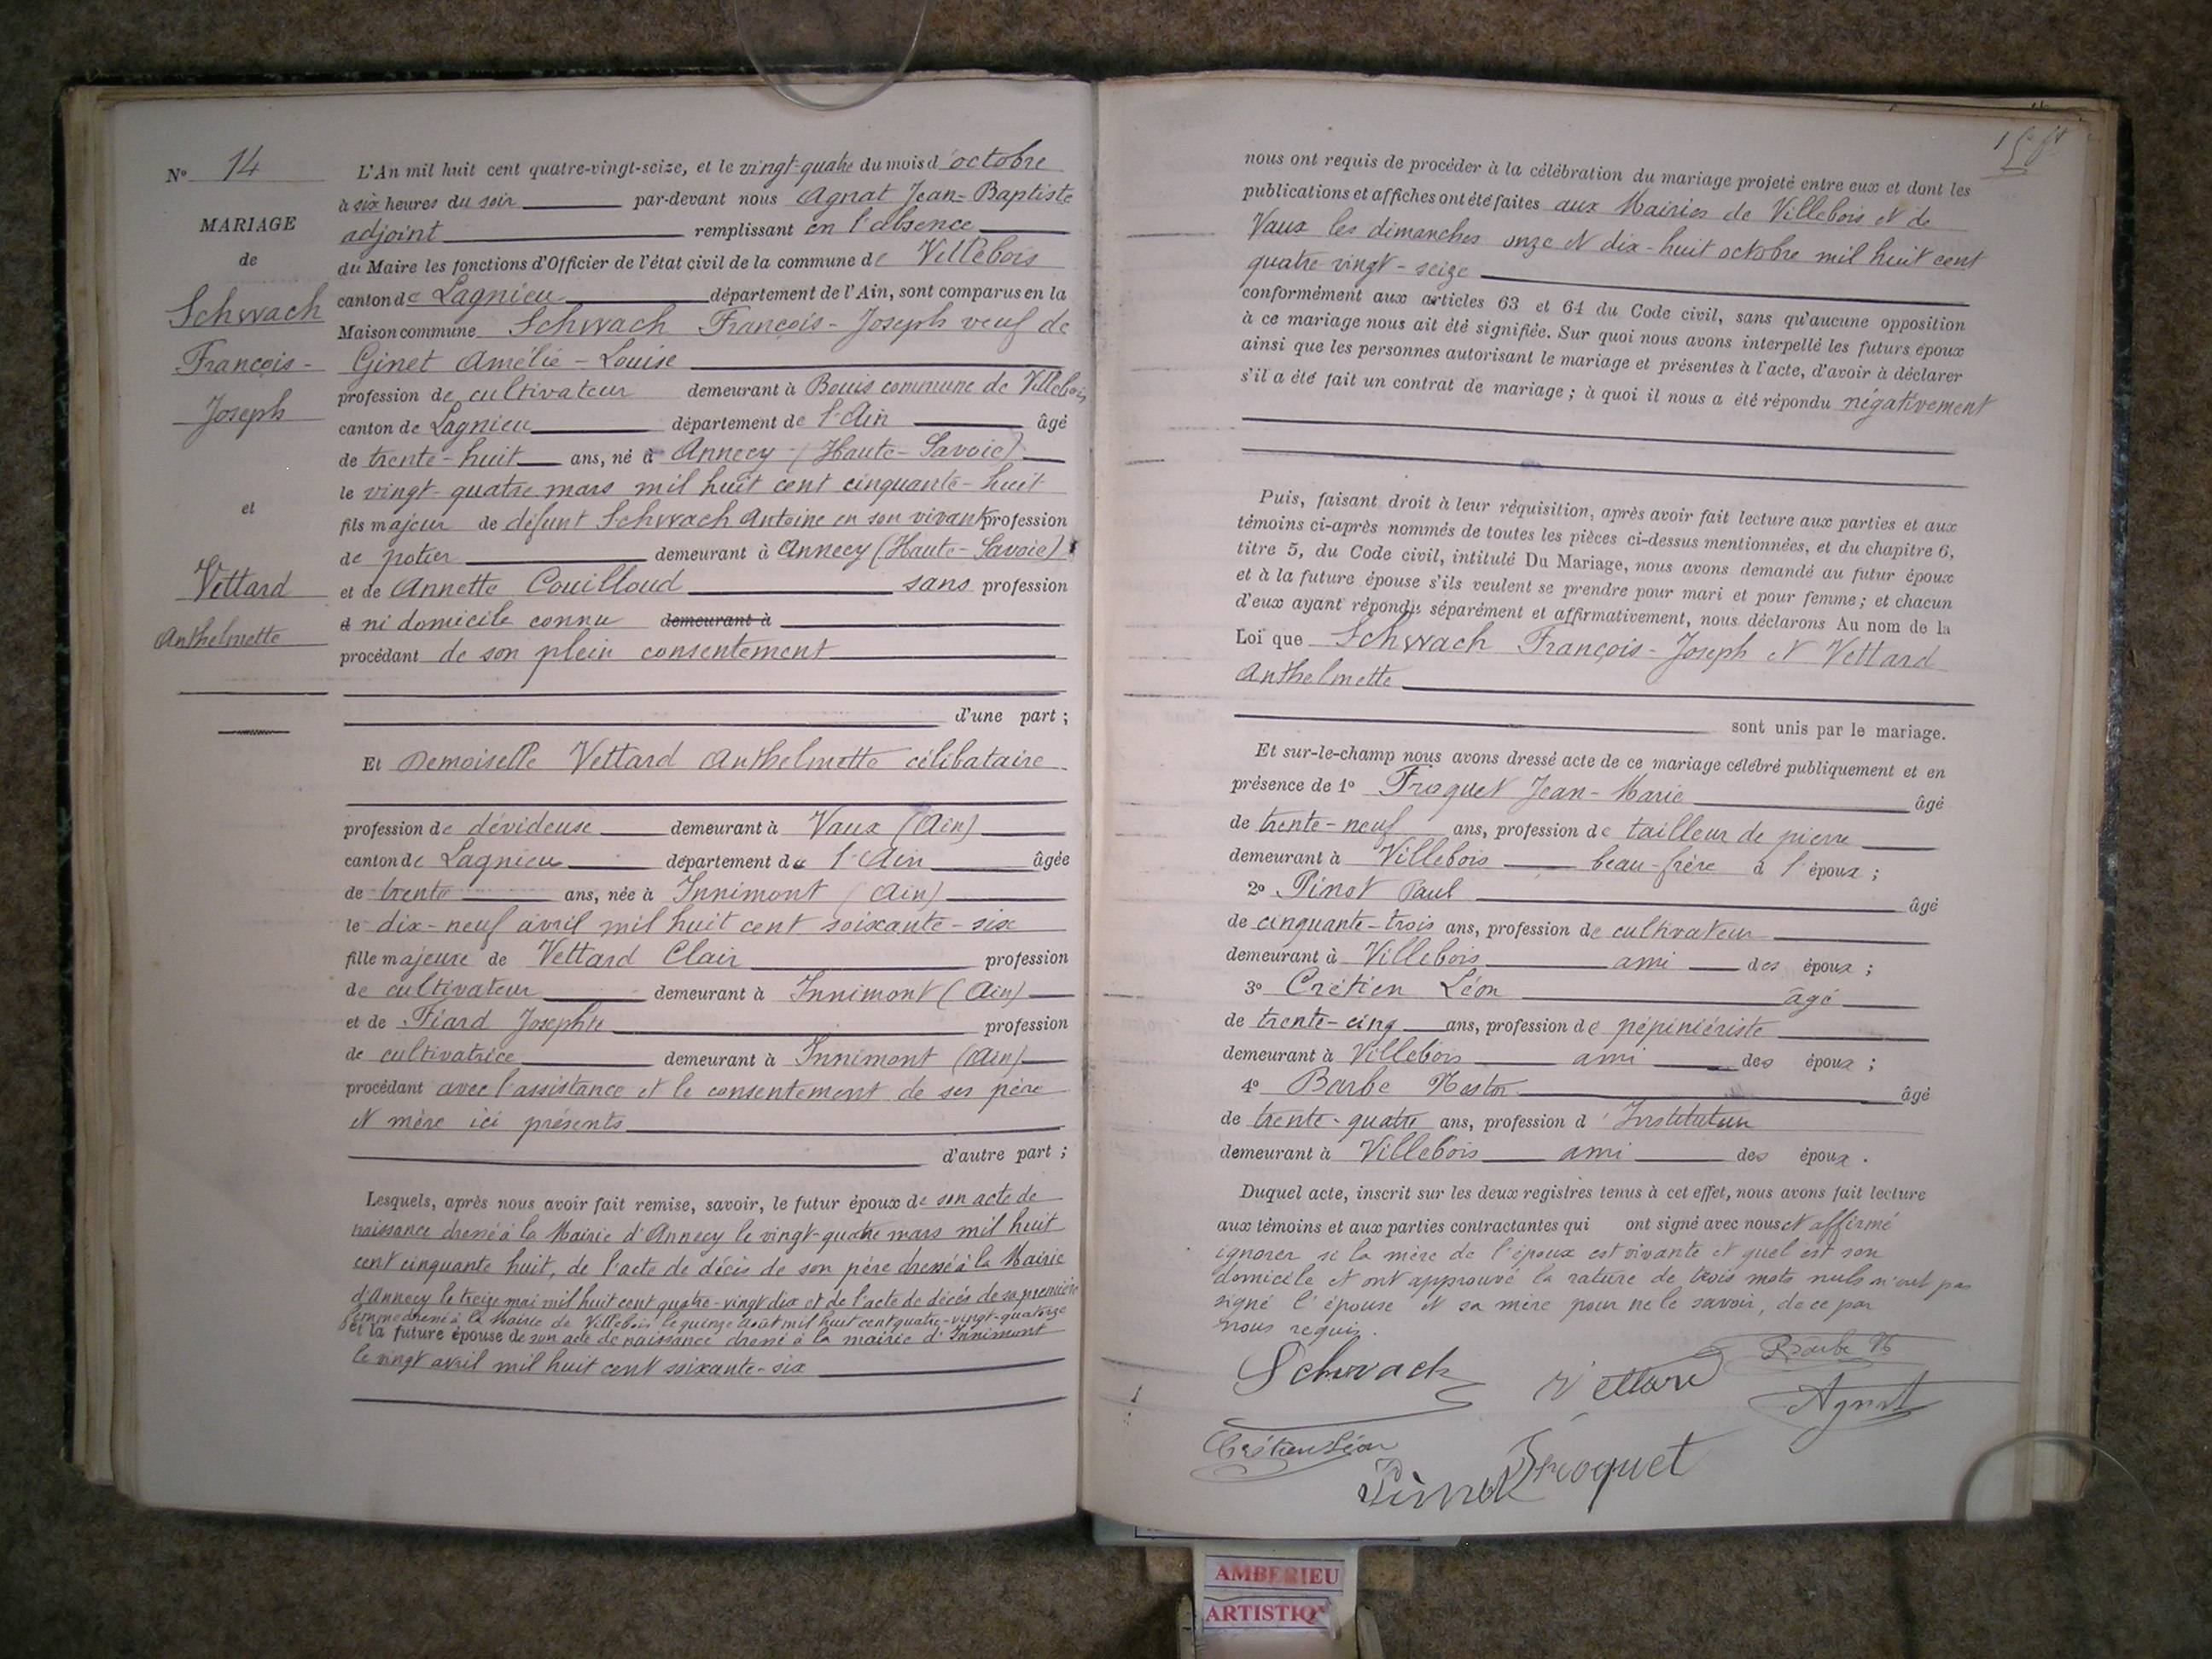 N° 14
MARIAGE
de
Schwach
François-
Joseph
et
Vettard
Anthelmette
L'An mil huit cent quatre-vingt-seize, et le vingt-quatre du mois d'octobre
à six heures du soir par-devant nous Agnat Jean-Baptiste
adjoint remplissant en l'absence
du Maire les fonctions d'Officier de l'état civil de la commune de Villebois
canton de Lagnieu département de l'Ain, sont comparus en la
Maison commune Schwach François-Joseph veuf de
Ginet Amélie-Louise
profession de cultivateur demeurant à Bouis commune de Villebois
canton de Lagnieu département de l'Ain âgé
de trente-huit ans, né à Annecy (Haute-Savoie)
le vingt-quatre mars mil huit cent cinquante-huit
fils majeur de défunt Schwach Antoine en son vivant profession
de potier demeurant à Annecy (Haute-Savoie)
et de Annette Couilloud sans profession
ni domicile connu demeurant à
procédant de son plein consentement
d'une part ;
Et Demoiselle Vettard Anthelmette célibataire
profession de dévideuse demeurant à Vaux (Ain)
canton de Lagnieu département de l'Ain âgée
de trente ans, née à Innimont (Ain)
le dix-neuf avril mil huit cent soixante-six
fille majeure de Vettard Clair profession
de cultivateur demeurant à Innimont (Ain)
et de Fiard Josephte profession
de cultivatrice demeurant à Innimont (Ain)
procédant avec l'assistance et le consentement de ses père
et mère ici présents
d'autre part ;
Lesquels, après nous avoir fait remise, savoir, le futur époux de son acte de
naissance dressé à la Mairie d'Annecy le vingt-quatre mars mil huit
cent cinquante huit, de l'acte de décès de son père dressé à la Mairie
d'Annecy le treize mai mil huit cent quatre-vingt dix et de l'acte de décès de sa première
femme dressé à la Mairie de Villebois le quinze août mil huit cent quatre-vingt-quatorze
et la future épouse de son acte de naissance dressé à la mairie d'Innimont
le vingt avril mil huit cent soixante-six
nous ont requis de procéder à la célébration du mariage projeté entre eux et dont les
publications et affiches ont été faites aux Mairies de Villebois et de
Vaux les dimanches onze et dix-huit octobre mil huit cent
quatre vingt-seize
conformément aux articles 63 et 64 du Code civil, sans qu'aucune opposition
à ce mariage nous ait été signifiée. Sur quoi nous avons interpellé les futurs époux
ainsi que les personnes autorisant le mariage et présentes à l'acte, d'avoir à déclarer
s'il a été fait un contrat de mariage ; à quoi il nous a été répondu négativement
Puis, faisant droit à leur réquisition, après avoir fait lecture aux parties et aux
témoins ci-après nommés de toutes les pièces ci-dessus mentionnées, et du chapitre 6,
titre 5, du Code civil, intitulé Du Mariage, nous avons demandé au futur époux
et à la future épouse s'ils veulent se prendre pour mari et pour femme ; et chacun
d'eux ayant répondu séparément et affirmativement, nous déclarons Au nom de la
Loi que Schwach François-Joseph et Vettard
Anthelmette
sont unis par le mariage.
Et sur-le-champ nous avons dressé acte de ce mariage célébré publiquement et en
présence de 1° Froquet Jean-Marie âgé
de trente-neuf ans, profession de tailleur de pierre
demeurant à Villebois beau-frère à l'époux ;
2° Pinot Paul âgé
de cinquante-trois ans, profession de cultivateur
demeurant à Villebois ami des époux ;
3° Crétien Léon âgé
de trente-cinq ans, profession de pépiniériste
demeurant à Villebois ami des époux ;
4° Barbe Nestor âgé
de trente-quatre ans, profession d'Instituteur
demeurant à Villebois ami des époux.
Duquel acte, inscrit sur les deux registres tenus à cet effet, nous avons fait lecture
aux témoins et aux parties contractantes qui ont signé avec nous et affirmé
ignorer si la mère de l'époux est vivante et quel est son
domicile et ont approuvé la rature de trois mots nuls n'ont pas
signé l'épouse et sa mère pour ne le savoir, de ce par
nous requis.
Schwach Vettard Barbe N
Agnat
Crétien Léon
Pinot Froquet
AMBERIEU
ARTISTIQ